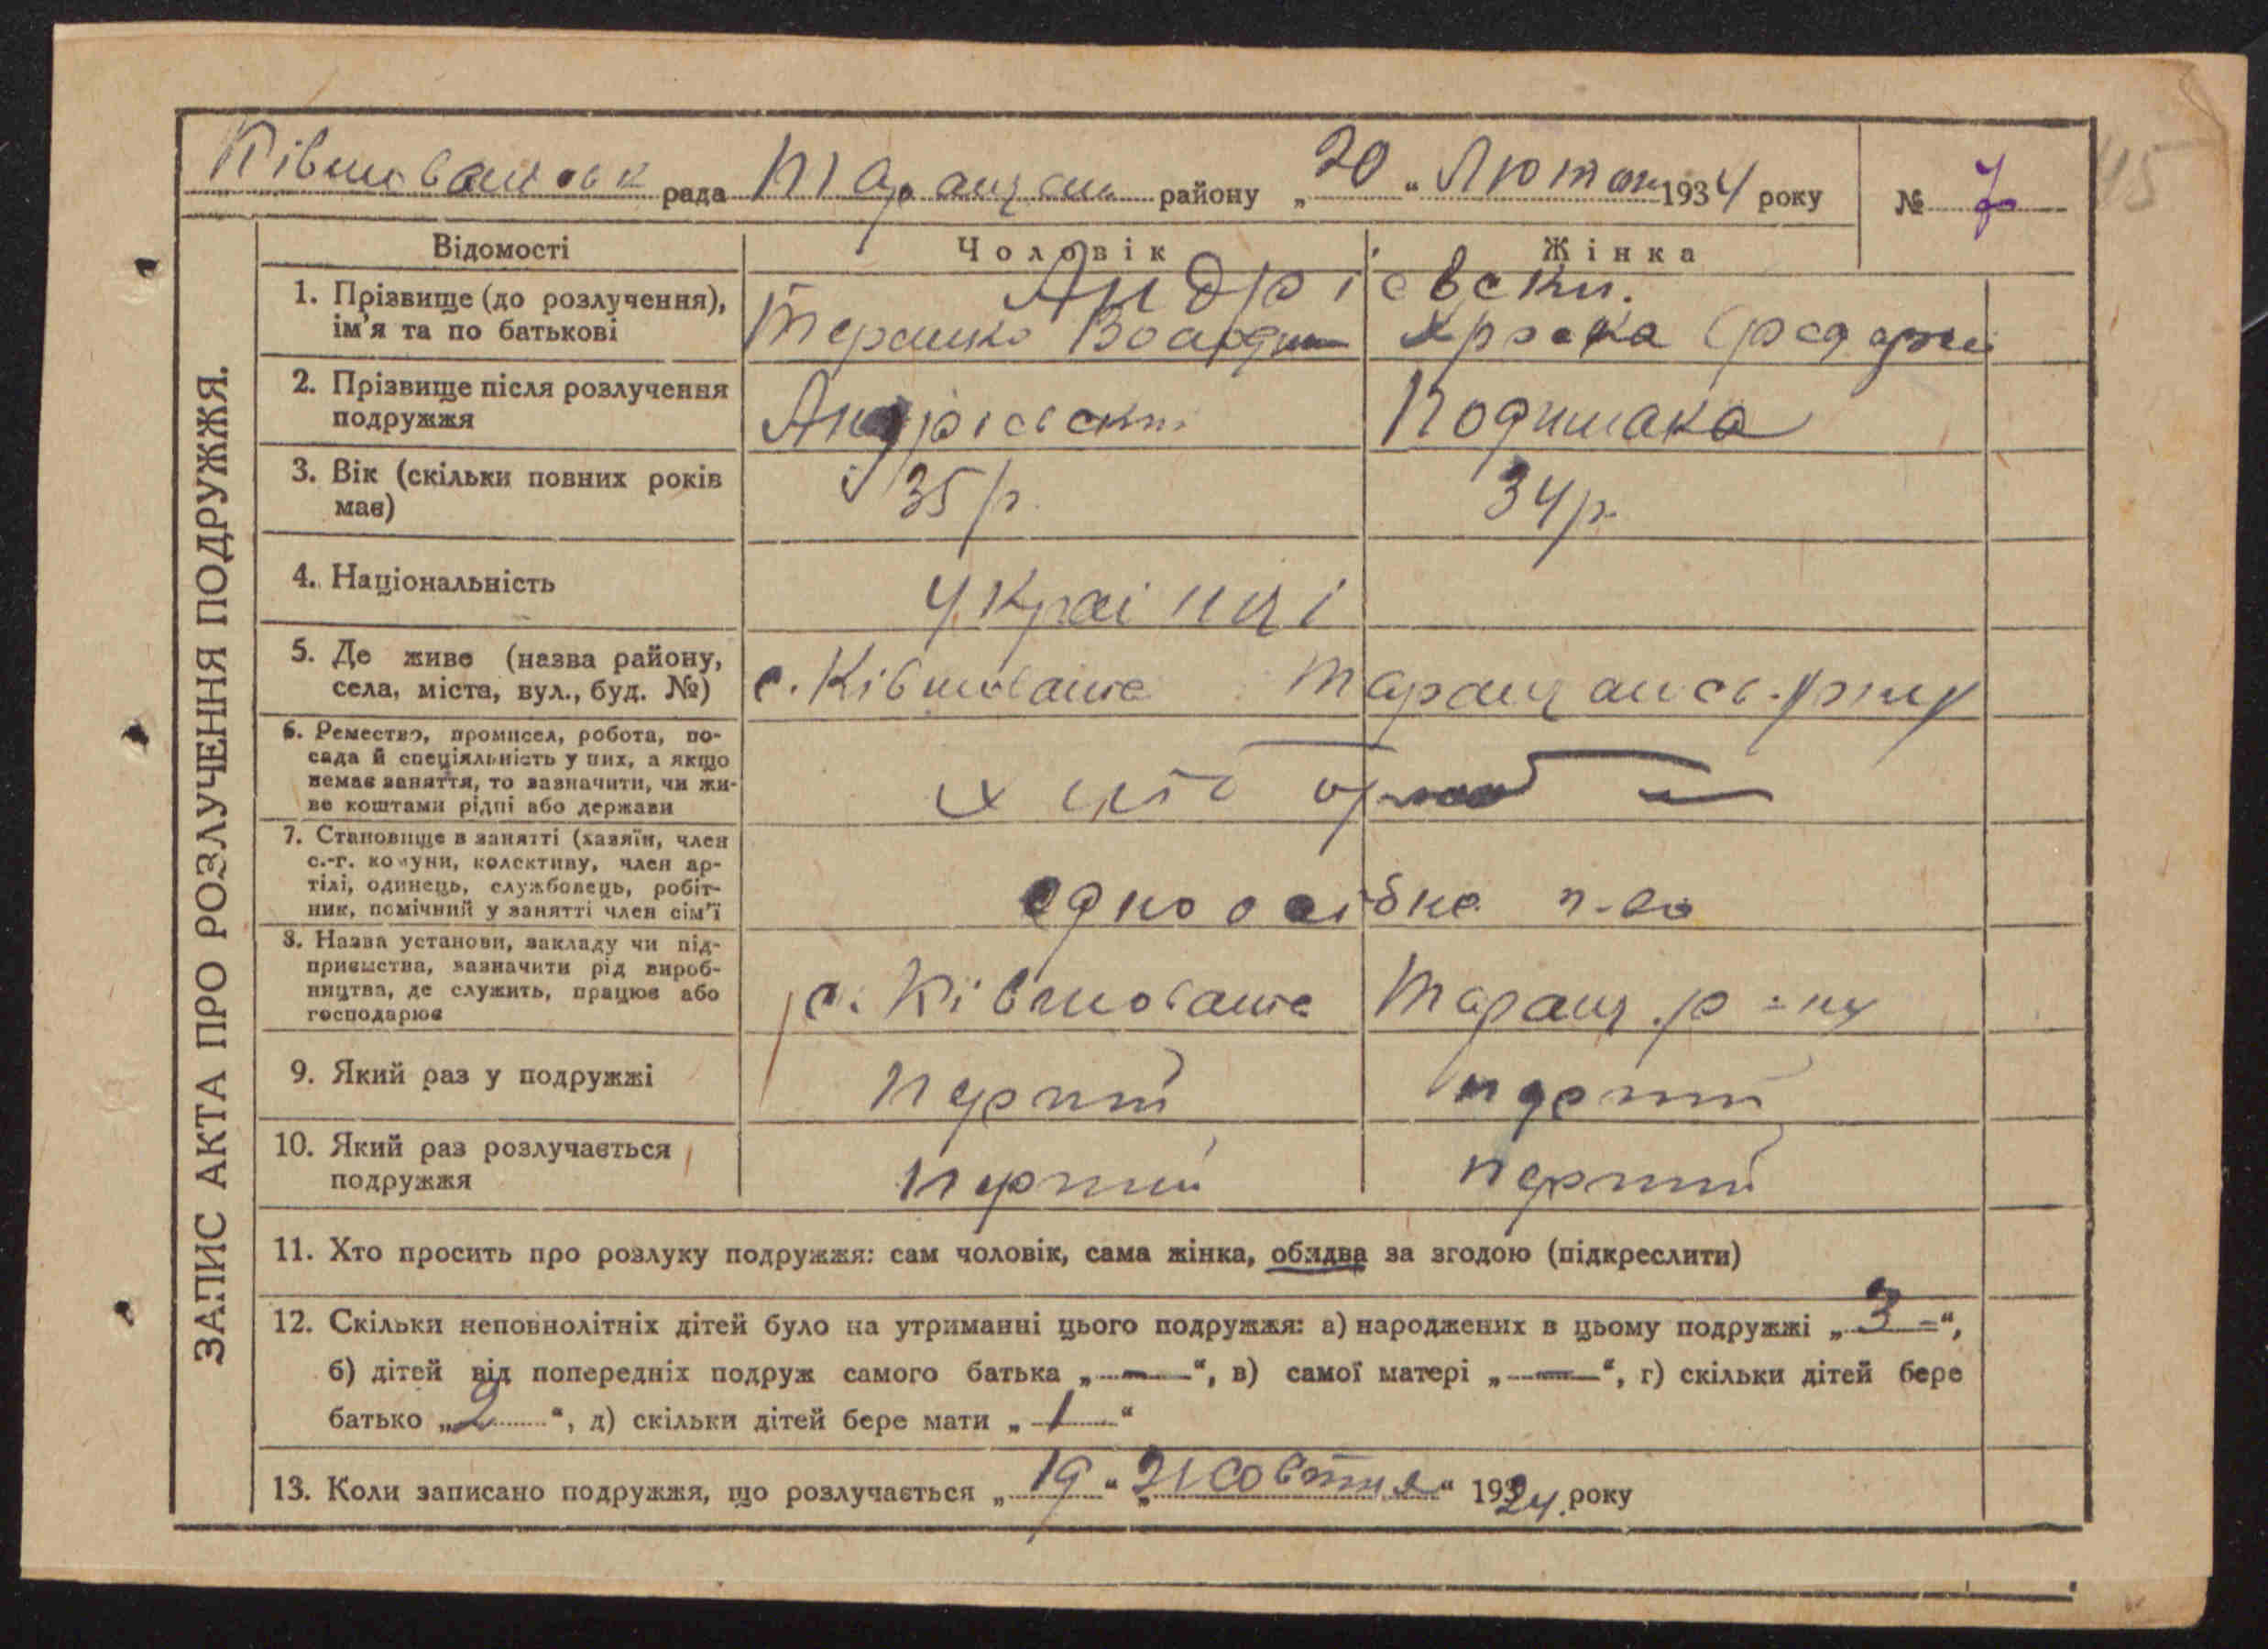 Ківшоватськ рада Таращан. району „20“ Лютого 1934 року № 7
45
ЗАПИС АКТА ПРО РОЗЛУЧЕННЯ ПОДРУЖЖЯ.
Відомості Чоловік Жінка
1. Прізвище (до розлучення), ім'я та по батькові
Андрієвськи.
2. Прізвище після розлучення подружжя
Андрієвськи
3. Вік (скільки повних років має) 35 р. 34 р.
4. Національність Українці
5. Де живе (назва району, села, міста, вул., буд. №) с. Ківшовате Таращанськ. р-ну
6. Ремество, промисел, робота, по-
сада й спеціяльність у них, а якщо
немає заняття, то зазначити, чи жи-
ве коштами рідні або держави
7. Становище в занятті (хазяїн, член
с.-г. комуни, колективу, член ар-
тілі, одинець, службовець, робіт-
ник, помічний у занятті член сім'ї
одноосібне
8. Назва установи, закладу чи під-
приємства, зазначити рід вироб-
ництва, де служить, працює або
господарює
с. Ківшовате Таращ. р-ну
9. Який раз у подружжі перший перший
10. Який раз розлучається подружжя перший перший
11. Хто просить про розлуку подружжя: сам чоловік, сама жінка, обидва за згодою (підкреслити)
12. Скільки неповнолітніх дітей було на утриманні цього подружжя: а) народжених в цьому подружжі „3“,
б) дітей від попередніх подруж самого батька „—“, в) самої матері „—“, г) скільки дітей бере
батько „2“, д) скільки дітей бере мати „1“
13. Коли записано подружжя, що розлучається „19“ „Жовтня“ 1924. року